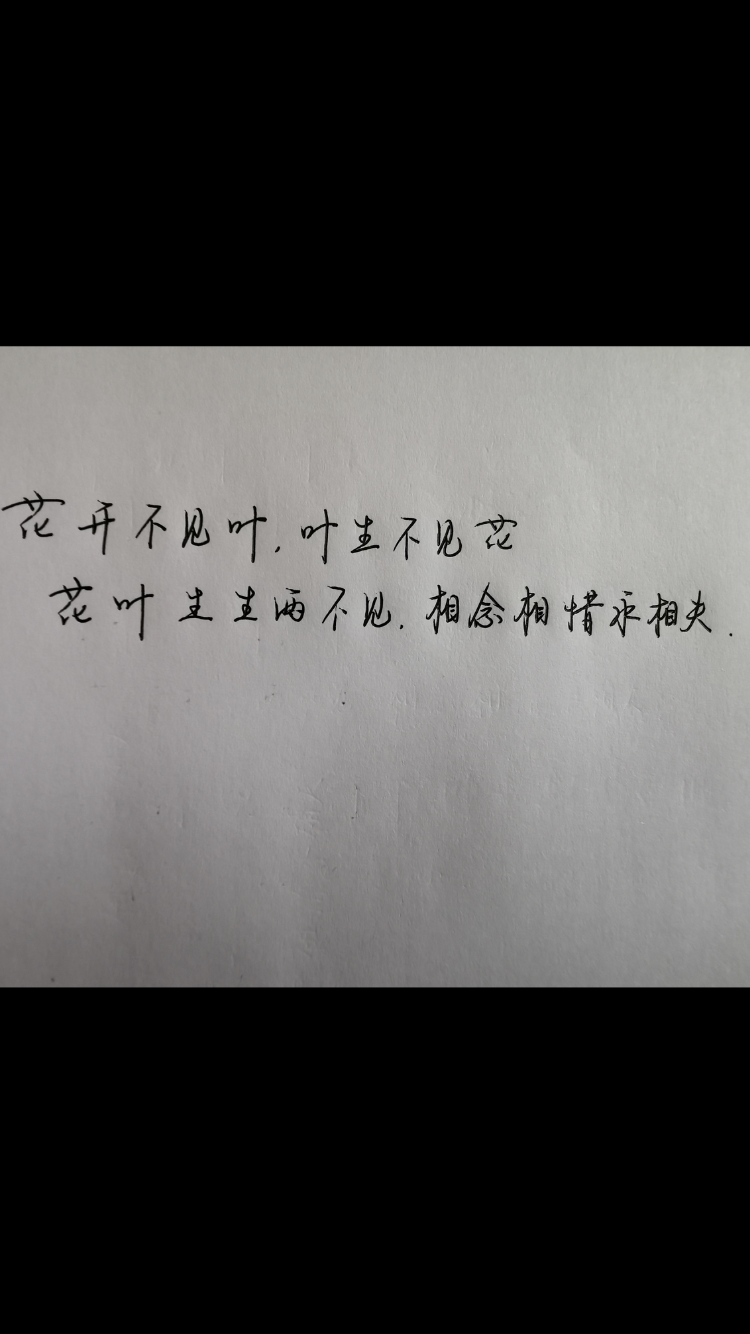 花开不见叶,叶生不见花
花叶生生两不见,相念相惜永相失.